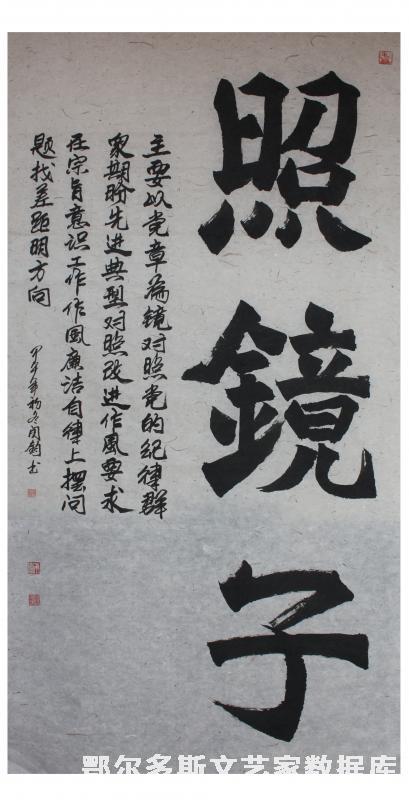 照鏡子
主要以党章为鏡对照党的纪律群
众期盼先进典型对照改进作风要求
在宗旨意识工作作風廉洁自律上摆问
题找差距明方向
甲午年初冬
鄂尔多斯文艺家数据库